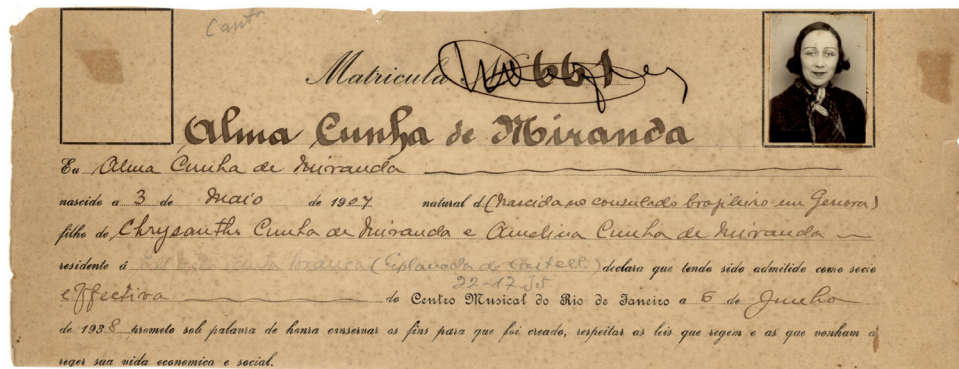 Cant.
Matricula N.º 661
Alma Cunha de Miranda
Eu Alma Cunha de Miranda
nascido a 3 de Maio de 1907 natural d (Nascida no consulado brasileiro em Genova)
filho de Chrysantho Cunha de Miranda e Amelina Cunha de Miranda
residente á (Esplanada do Castell) declara que tendo sido admitido como socio
22-1735
effectiva do Centro Musical do Rio de Janeiro a 6 de Junho
de 1938 prometo sob palavra de honra conservar os fins para que foi creado, respeitar as leis que regem e as que venham a
reger sua vida economica e social.